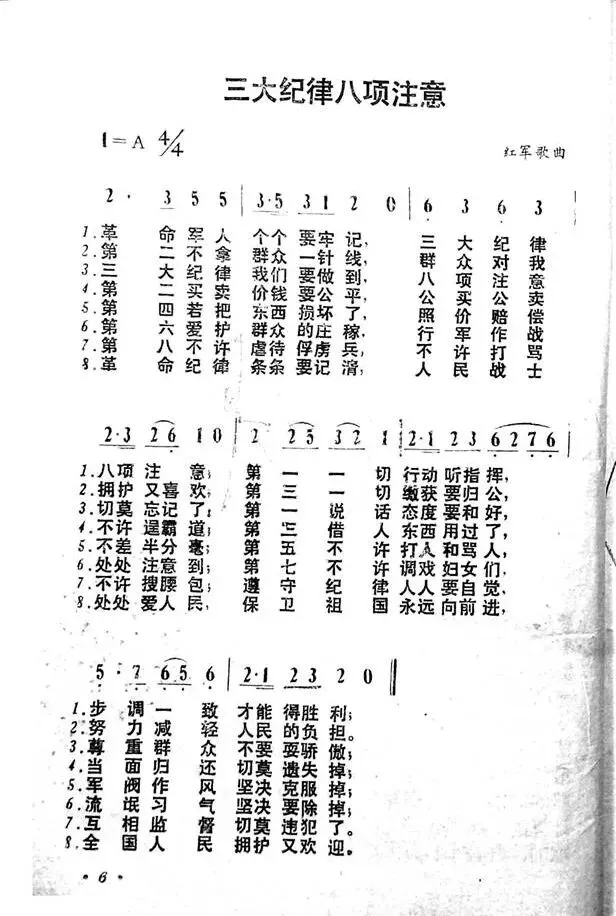 三大纪律八项注意
1=A 4/4
红军歌曲
2· 3 5 5 | 3·5 3 1 2 0 | 6 3 6 3
1.革命军人个个要牢记,三大纪律
2.第二不拿群众一针线,群众对我
3.三大纪律我们要做到,八项注意
4.第二买卖价钱要公平,公买公卖
5.第四若把东西损坏了,照价赔偿
6.第六爱护群众的庄稼,行军作战
7.第八不许虐待俘虏兵,不许打骂
8.革命纪律条条要记清,人民战士
2·3 2 6 1 0 | 2 2 5 3 2 1 | 2·1 2 3 6 2 7 6
1.八项注意;第一一切行动听指挥,
2.拥护又喜欢;第三一切缴获要归公,
3.切莫忘记了;第一说话态度要和好,
4.不许逞霸道;第三借东西用过了,
5.不差半分毫;第五不许打人和骂人,
6.处处注意到;第七不许调戏妇女们,
7.不许搜腰包;遵守纪律人人要自觉,
8.处处爱人民;保卫祖国永远向前进,
5· 7 6 5 6 | 2·1 2 3 2 0 ‖
1.步调一致才能得胜利;
2.努力减轻人民的负担。
3.尊重群众不要耍骄傲;
4.当面归还切莫遗失掉;
5.军阀作风坚决克服掉;
6.流氓习气坚决要除掉;
7.互相监督切莫违犯了。
8.全国人民拥护又欢迎。
·6·